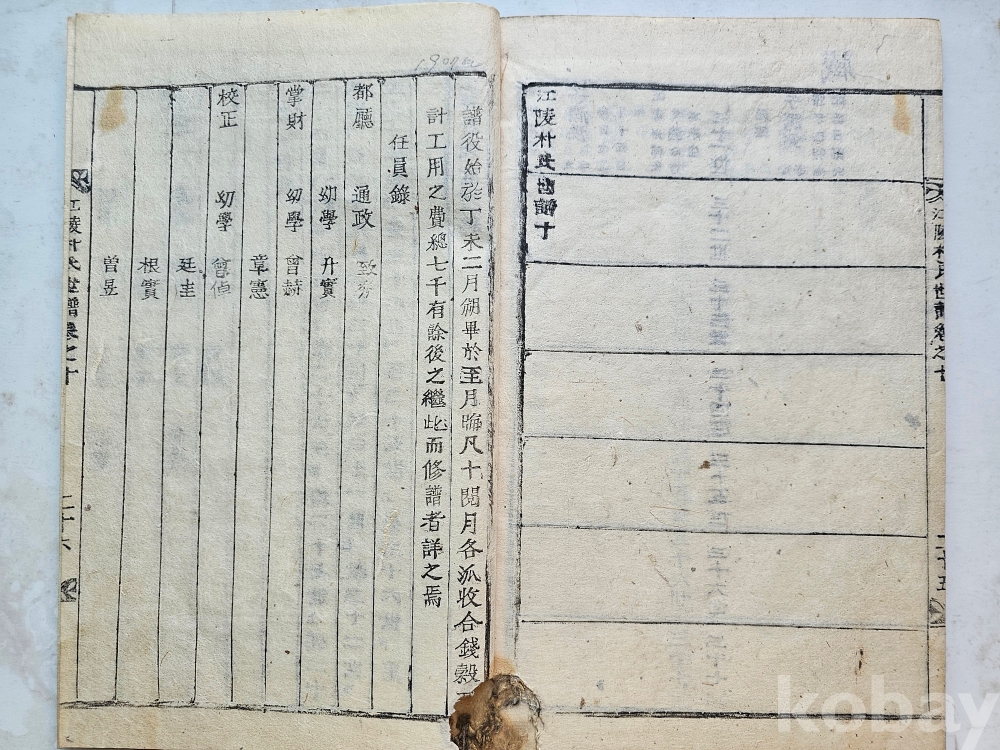 江陵朴氏世譜卷之十
二十五
江陵朴氏世譜十
譜役始於丁未二月朔畢於至月晦凡十閱月各派收合錢穀
計工用之費總七千有餘後之繼此而修譜者詳之焉
任員錄
都廳 通政 致
幼學 升實
掌財 幼學 曾赫
章憲
校正 幼學 曾倬
廷圭
根實
曾昱
江陵朴氏世譜卷之十
二十六
kobay